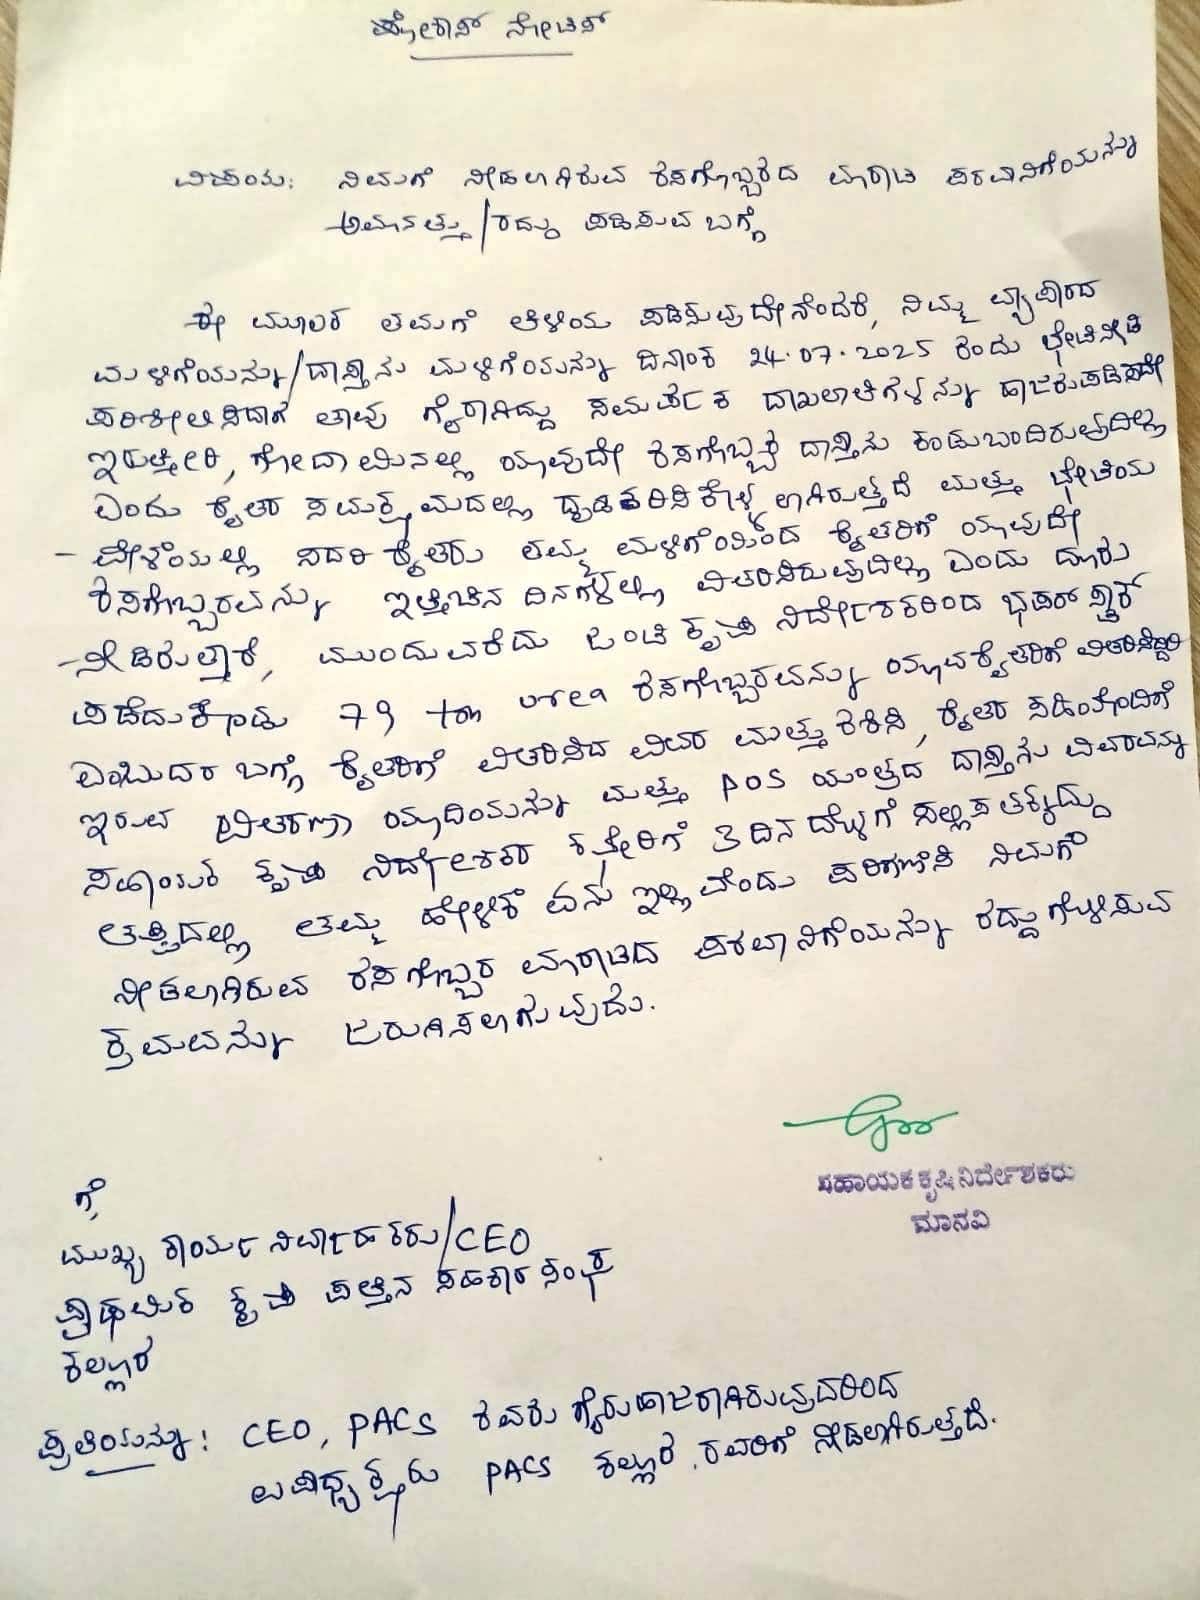 ಷೋಕಾಸ್ ನೋಟಿಸ್
ವಿಷಯ: ನಿಮಗೆ ನೀಡಲಾಗಿರುವ ರಸಗೊಬ್ಬರದ ಮಾರಾಟ ಪರವಾನಿಗೆಯನ್ನು
ಅಮಾನತ್ತು/ರದ್ದು ಪಡಿಸುವ ಬಗ್ಗೆ
ಈ ಮೂಲಕ ತಮಗೆ ತಿಳಿಯ ಪಡಿಸುವುದೇನೆಂದರೆ, ನಿಮ್ಮ ವ್ಯಾಪಾರದ
ಮಳಿಗೆಯನ್ನು/ದಾಸ್ತಾನು ಮಳಿಗೆಯನ್ನು ದಿನಾಂಕ 24.07.2025 ರಂದು ಭೇಟಿನೀಡಿ
ಪರಿಶೀಲಿಸಿದಾಗ ತಾವು ಗೈರಾಗಿದ್ದು ಸಮರ್ಪಕ ದಾಖಲಾತಿಗಳನ್ನು ಹಾಜರುಪಡಿಸದೇ
ಇರುತ್ತೀರಿ, ಗೋದಾಮಿನಲ್ಲಿ ಯಾವುದೇ ರಸಗೊಬ್ಬರ ದಾಸ್ತಾನು ಕಂಡುಬಂದಿರುವುದಿಲ್ಲ
ಎಂದು ರೈತರ ಸಮಕ್ಷಮದಲ್ಲಿ ದೃಡಿಕರಿಸಿಕೊಳ್ಳಲಾಗಿರುತ್ತದೆ ಮತ್ತು ಭೇಟಿಯ
- ವೇಳೆಯಲ್ಲಿ ಸದರಿ ರೈತರು ತಮ್ಮ ಮಳಿಗೆಯಿಂದ ರೈತರಿಗೆ ಯಾವುದೇ
ರಸಗೊಬ್ಬರವನ್ನು ಇತ್ತಿಚಿನ ದಿನಗಳಲ್ಲಿ ವಿತರಿಸಿರುವುದಿಲ್ಲ ಎಂದು ದೂರು
- ನೀಡಿರುತ್ತಾರೆ, ಮುಂದುವರೆದು ಜಂಟಿ ಕೃಷಿ ನಿರ್ದೇಶಕರಿಂದ ಭಫರ್ ಸ್ಟಾಕ್
ಪಡೆದುಕೊಂಡು 79 ton urea ರಸಗೊಬ್ಬರವನ್ನು ಯಾವ ರೈತರಿಗೆ ವಿತರಿಸಿದ್ದೀರಿ
ಎಂಬುದರ ಬಗ್ಗೆ ರೈತರಿಗೆ ವಿತರಿಸಿದ ವಿವರ ಮತ್ತು ರಶಿದಿ, ರೈತರ ಸಹಿಯೊಂದಿಗೆ
ಇರುವ ವಿತರಣಾ ಯಾದಿಯನ್ನು ಮತ್ತು POS ಯಂತ್ರದ ದಾಸ್ತಾನು ವಿವರವನ್ನು
ಸಹಾಯಕ ಕೃಷಿ ನಿರ್ದೇಶಕರ ಕಚೇರಿಗೆ 3 ದಿನದೊಳಗೆ ಸಲ್ಲಿಸತಕ್ಕದ್ದು
ತಪ್ಪಿದಲ್ಲಿ ತಮ್ಮ ಹೇಳಿಕೆ ಏನು ಇಲ್ಲವೆಂದು ಪರಿಗಣಿಸಿ ನಿಮಗೆ
ನೀಡಲಾಗಿರುವ ರಸಗೊಬ್ಬರ ಮಾರಾಟದ ಪರವಾನಿಗೆಯನ್ನು ರದ್ದುಗೊಳಿಸುವ
ಕ್ರಮವನ್ನು ಜರುಗಿಸಲಾಗುವುದು.
ಸಹಾಯಕ ಕೃಷಿ ನಿರ್ದೇಶಕರು
ಮಾನವಿ
ಗೆ,
ಮುಖ್ಯ ಕಾರ್ಯ ನಿರ್ವಾಹಕರು/CEO
ಪ್ರಾಥಮಿಕ ಕೃಷಿ ಪತ್ತಿನ ಸಹಕಾರ ಸಂಘ
ಕಲ್ಲೂರ
ಪ್ರತಿಯನ್ನು: CEO, PACS ರವರು ಗೈರುಹಾಜರಾಗಿರುವುದರಿಂದ
PACS ಕಲ್ಲೂರ, ರವರಿಗೆ ನೀಡಲಾಗಿರುತ್ತದೆ.